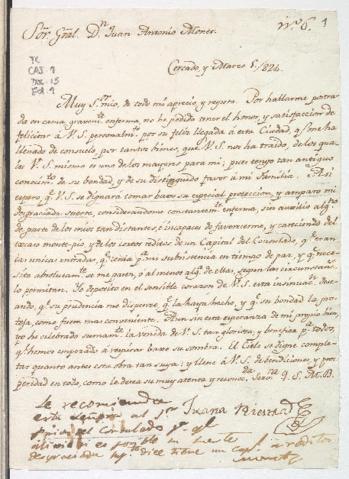 Sor. Gral. Dn. Juan Antonio Monet.
No. 6. 1
TC
CAJ. 9
DOC. 15
FOL. 1
Cercado y Marzo 5/824.
Muy Sr. mio, de todo mi aprecio y respeto. Por hallarme postra-
da en cama, gravemte. enferma, no he podido tener el honor, y satisfaccion de
felicitar á V.S. personalmte. por su feliz llegada á esta Ciudad, q. me ha
llenado de consuelo, por tantos bienes, que V.S. nos ha traido, de los qua-
les V.S. mismo es uno de los mayores para mi; pues tengo tan antiguo
conocimto. de su bondad, y de su distinguido favor á mi familia. Así
espero, q. V.S. se dignará tomar bajo su especial proteccion, y amparo mi
desgraciada suerte, considerandome constantemte. enferma, sin auxilio algo.
de parte de los mios tan distantes, é incapaces de favorecerme, y careciendo del
monte-pio, y de los cortos reditos de un Capital del Consulado, q. eran
las unicas entradas, q. tenia pa. mi subsistencia en tiempo de paz, y q. nece-
sito absolutamte. se me paguen, ó al menos alga. de ellas, segun las circunstancs.
lo permitan. Yo deposito en el sensible corazon de V.S. esta insinuacn.
ando, q. su prudencia me dispense, q. la haya hecho, y q. su bondad la pro-
teja, como fuere mas conveniente. Aun sin esta esperanza de mi propio bien,
yo he celebrado sumamte. la venida de V.S. tan gloriosa, y benefica pa. todos,
q. hemos empezado á respirar bajo su sombra. El Cielo se digne comple-
tar quanto antes esta obra tan suya; y llene á V.S. de bendiciones, y pros-
peridad en todo, como lo desea su muy atenta y recono. Servra. Q. S. M. B.
Juana
Se recomienda
esta señora al Sr.
del Consulado pa. q.
es posible su suerte
dice tiene un capl. á reditos
Monet